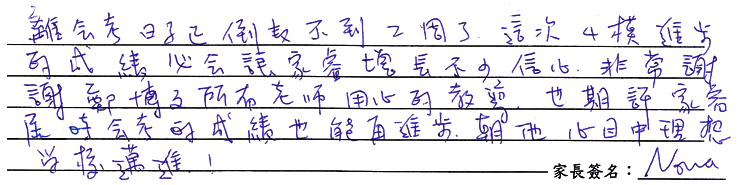 離會考日子已倒數不到2週了.這次4模進步
的成績必會讓家睿增長不少信心.非常謝
謝鄭博及所有老師用心的教導.也期許家睿
屆時會考的成績也能再進步.朝他心目中理想
學校邁進!
家長簽名:Nona